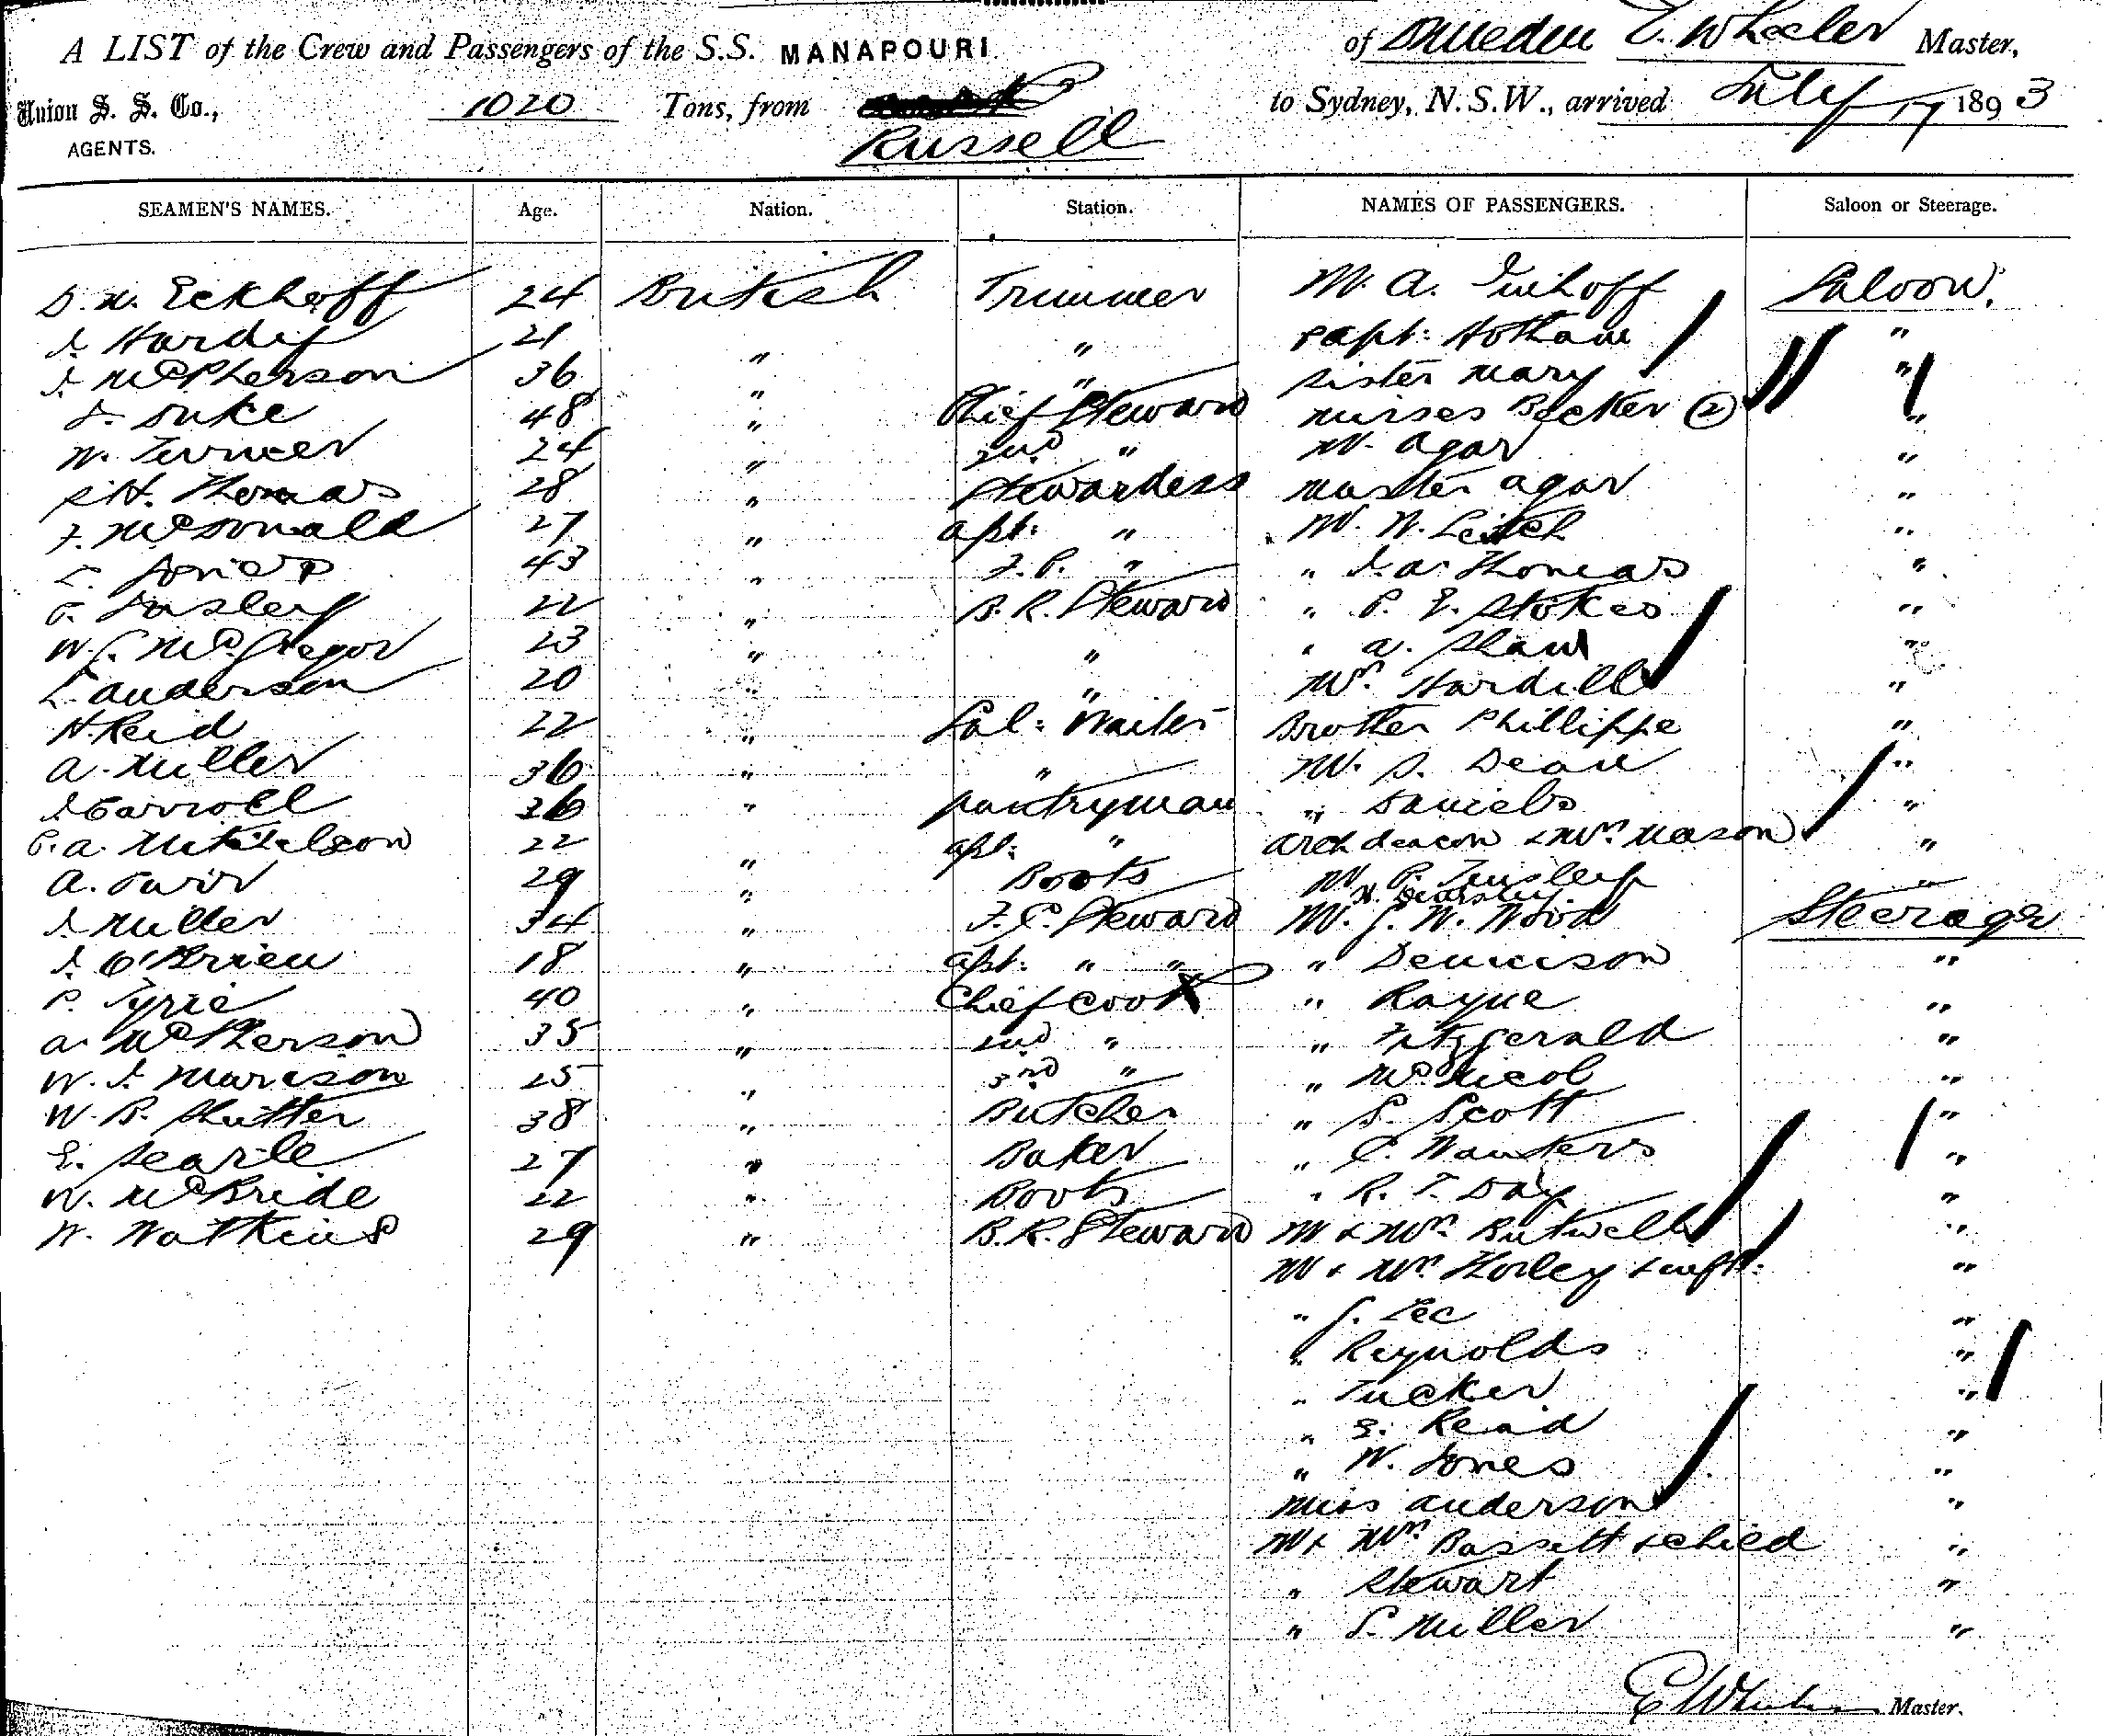 A LIST of the Crew and Passengers of the S.S. MANAPOURI of Dunedin E. Wheeler Master,
Union S. S. Co., AGENTS. 1020 Tons, from Russell to Sydney, N.S.W., arrived July 17 1893
SEAMEN'S NAMES. Age. Nation. Station. NAMES OF PASSENGERS. Saloon or Steerage.
Eckhoff 24 British Trimmer M. A. Saloon.
J. Hardy 21 " " Capt: Hotham "
J. McPherson 36 " " Sister Mary "
J. Duke 48 " Chief Steward Misses Becker (2) "
W. Turner 24 " 2nd " Mr. Agar "
S. H. Thomas 28 " Stewardess Master Agar "
F. McDonald 27 " Asst: " Mr. W. Leitch "
L. Jones 43 " F. C. " " J. A. Thomas "
22 " B. R. Steward " P. E. Stokes "
W. J. McGregor 23 " " " A. Shaw "
L. Anderson 20 " " Mrs. Hardill "
H. Reid 22 " Sal: Waiter Brother Phillippe "
A. Miller 36 " " Mr. S. Dean "
J. Carroll 36 " Pantryman " Daniels "
P. A. 22 " Asst: " Arch deacon & Mrs. Mason "
A. 29 " Boots Mr. P. Tinsley "
J. Miller 34 " F. C. Steward Mr. J. W. Wood Steerage
J. O'Brien 18 " Asst: " " " Dennison "
P. Tyrie 40 " Chief Cook " Rayne "
A. McPherson 35 " 2nd " " Fitzgerald "
W. J. Morison 25 " 3rd " " McNicol "
W. B. Shutter 38 " Butcher " S. Scott "
E. Searle 27 " Baker " C. "
W. McBride 22 " Boots " R. T. Day "
W. Watkins 29 " B. R. Steward Mr & Mrs. Butwell "
Mr & Mrs. Horley & inft: "
" J. Lee "
" Reynolds "
" Tucker "
" E. Read "
" W. Jones "
Miss Anderson "
Mr & Mrs Bassett & child "
" Stewart "
" S. Miller "
E Wheeler Master.